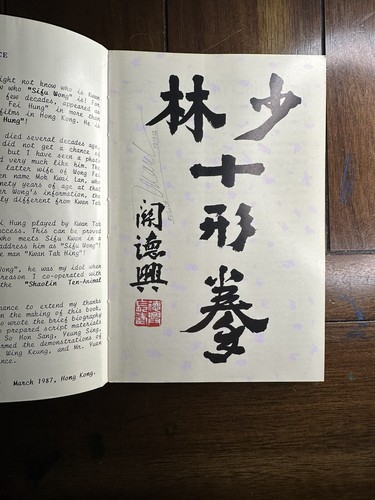 CE
ight not know who is Kwan
w who "Sifu Wong" is! For
few decades, appeared as
Fei Hung" in more than
films in Hong Kong. He is
Hung"!
died several decades ago,
did not get a chance of
but I have seen a photo
d very much like him. The
latter wife of Wong Fei
name Mok Kwai Lan, who
nety years of age at that
er Wong's information, the
ly different from Kwan Tak
i Hung played by Kwan Tak
uccess. This can be proved
who meets Sifu Kwan in a
address him as "Sifu Wong"!
e man "Kwan Tak Hing"!
ong", he was my idol when
reason I co-operated with
the "Shaolin Ten-Animal
ance to extend my thanks
n the making of this book,
o wrote the brief biography
prepared script materials
So Hon Sang, Yeung Sing,
rmed the demonstrations of
Wing Keung, and Mr. Yuen
nce.
March 1987, Hong Kong.
少林
十
形
拳
關德興